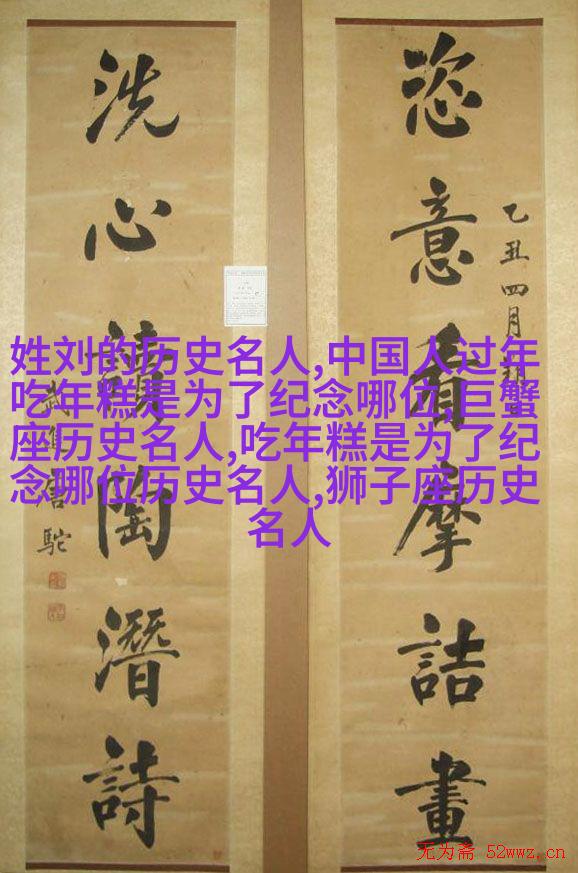 恣意看摩詰畫
乙丑四月
洗心讀陶潛詩
武進唐駝
姓刘的历史名人,中国人过年
吃年糕是为了纪念哪位,巨蟹
座历史名人,吃年糕是为了纪
念哪位历史名人,狮子座历史
名人
无为斋 52wwz.cn